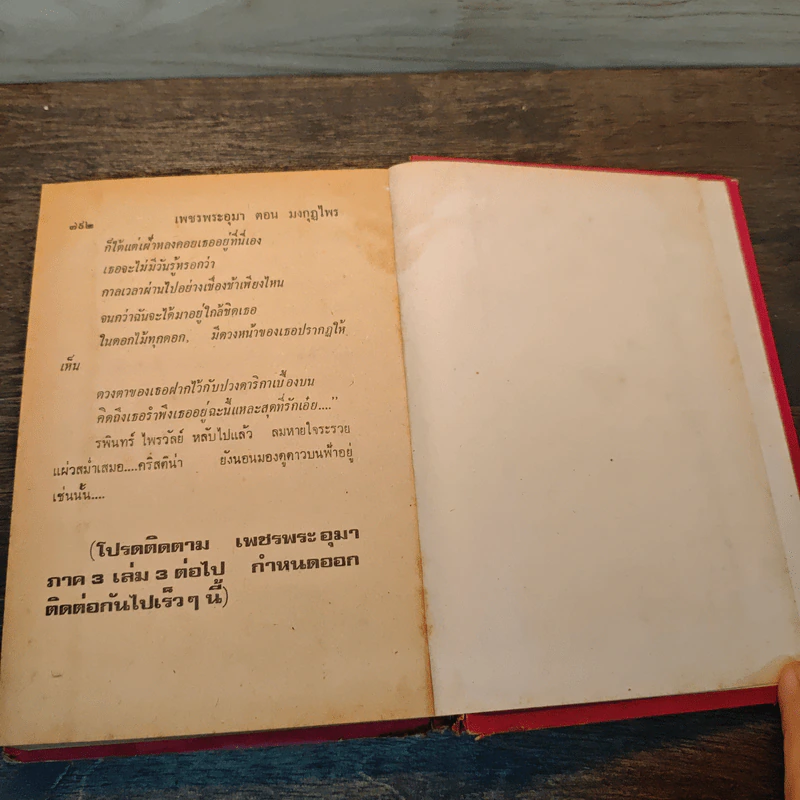 ๗๕๒ เพชรพระอุมา ตอน มงกุฎไพร
ก็ได้แต่เฝ้าหลงคอยเธออยู่ที่นี่เอง
เธอจะไม่มีวันรู้หรอกว่า
กาลเวลาผ่านไปอย่างเชื่องช้าเพียงไหน
จนกว่าฉันจะได้มาอยู่ใกล้ชิดเธอ
ในดอกไม้ทุกดอก, มีดวงหน้าของเธอปรากฏให้
เห็น
ดวงตาของเธอฝากไว้กับปวงดาริกาเบื้องบน
คิดถึงเธอรำพึงเธออยู่ฉะนี้แหละสุดที่รักเอ๋ย...."
รพินทร์ ไพรวัลย์ หลับไปแล้ว ลมหายใจระรวย
แผ่วสม่ำเสมอ....คริสตีน่า ยังนอนมองดูดาวบนฟ้าอยู่
เช่นนั้น....
(โปรดติดตาม เพชรพระอุมา
ภาค 3 เล่ม 3 ต่อไป กำหนดออก
ติดต่อกันไปเร็วๆ นี้)